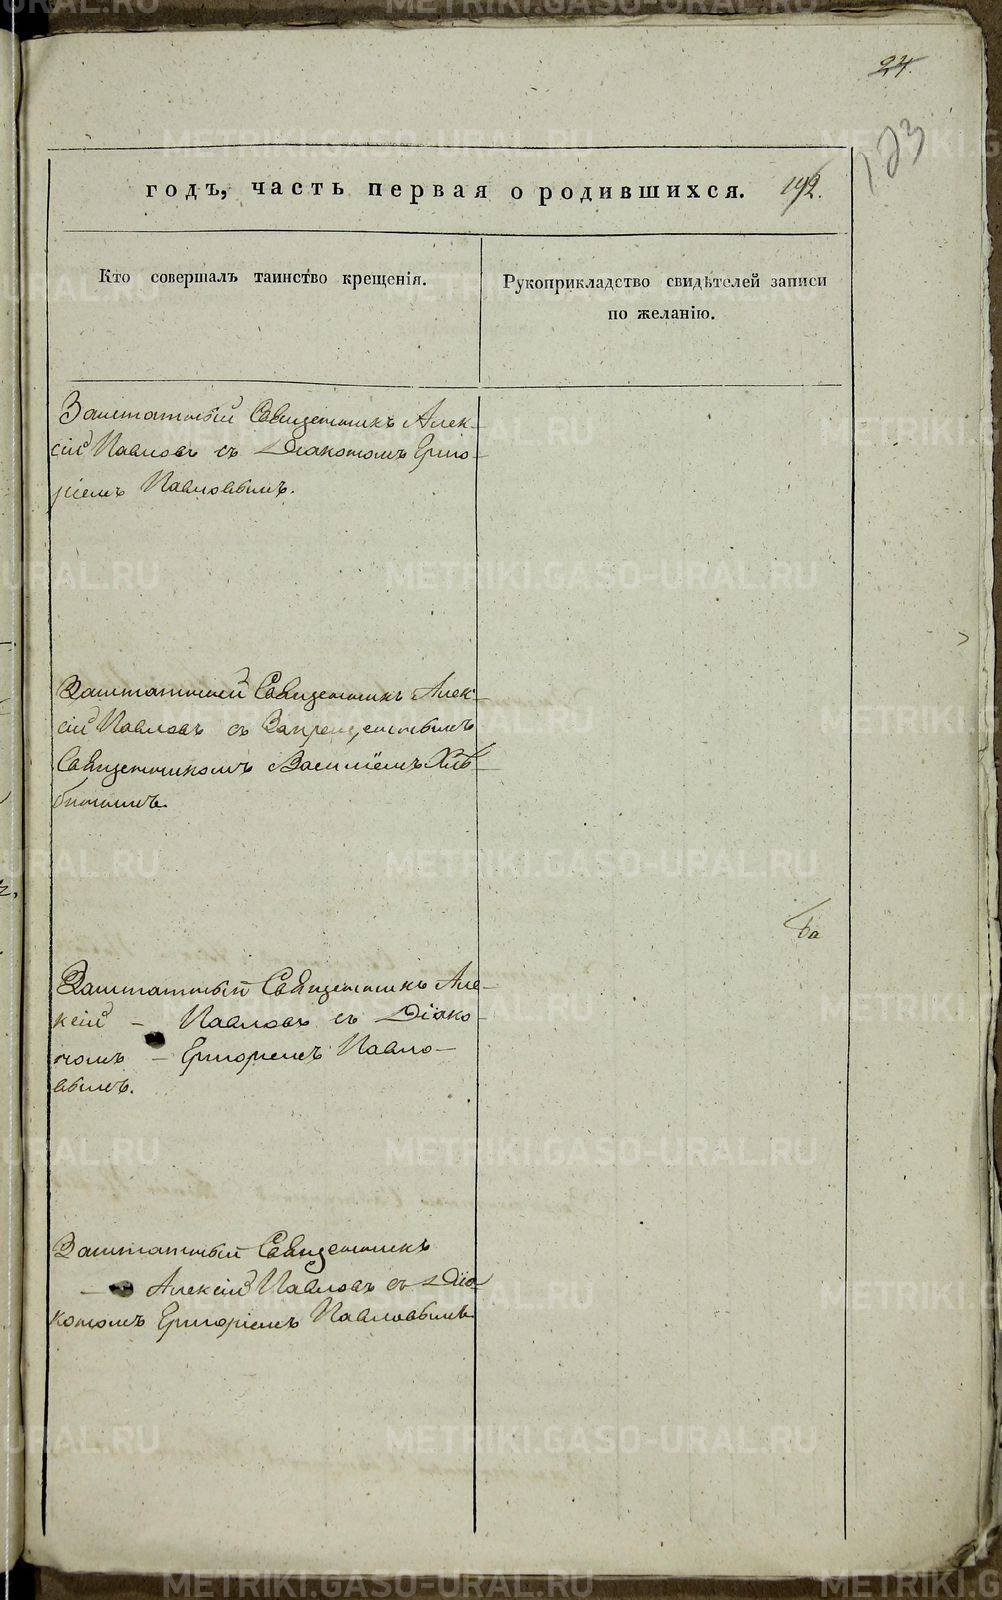 24.
123
годъ, часть первая о родившихся. 192.
Кто совершалъ таинство крещенія.
Рукоприкладство свидѣтелей записи
по желанію.
Заштатный Священникъ Алек-
сій Павловъ съ Діакономъ Григо-
ріемъ Павловымъ.
Заштатный Священникъ Алек-
сій Павловъ съ Запрещеннымъ
Священникомъ Василіемъ Хлѣ-
бинымъ.
Заштатный Священникъ Але-
ксій – Павловъ съ Діако-
номъ – Григоріемъ Павло-
вымъ.
Заштатный Священникъ
– Алексій Павловъ съ Діа-
кономъ Григоріемъ Павловымъ.
METRIKI.GASO-URAL.RU